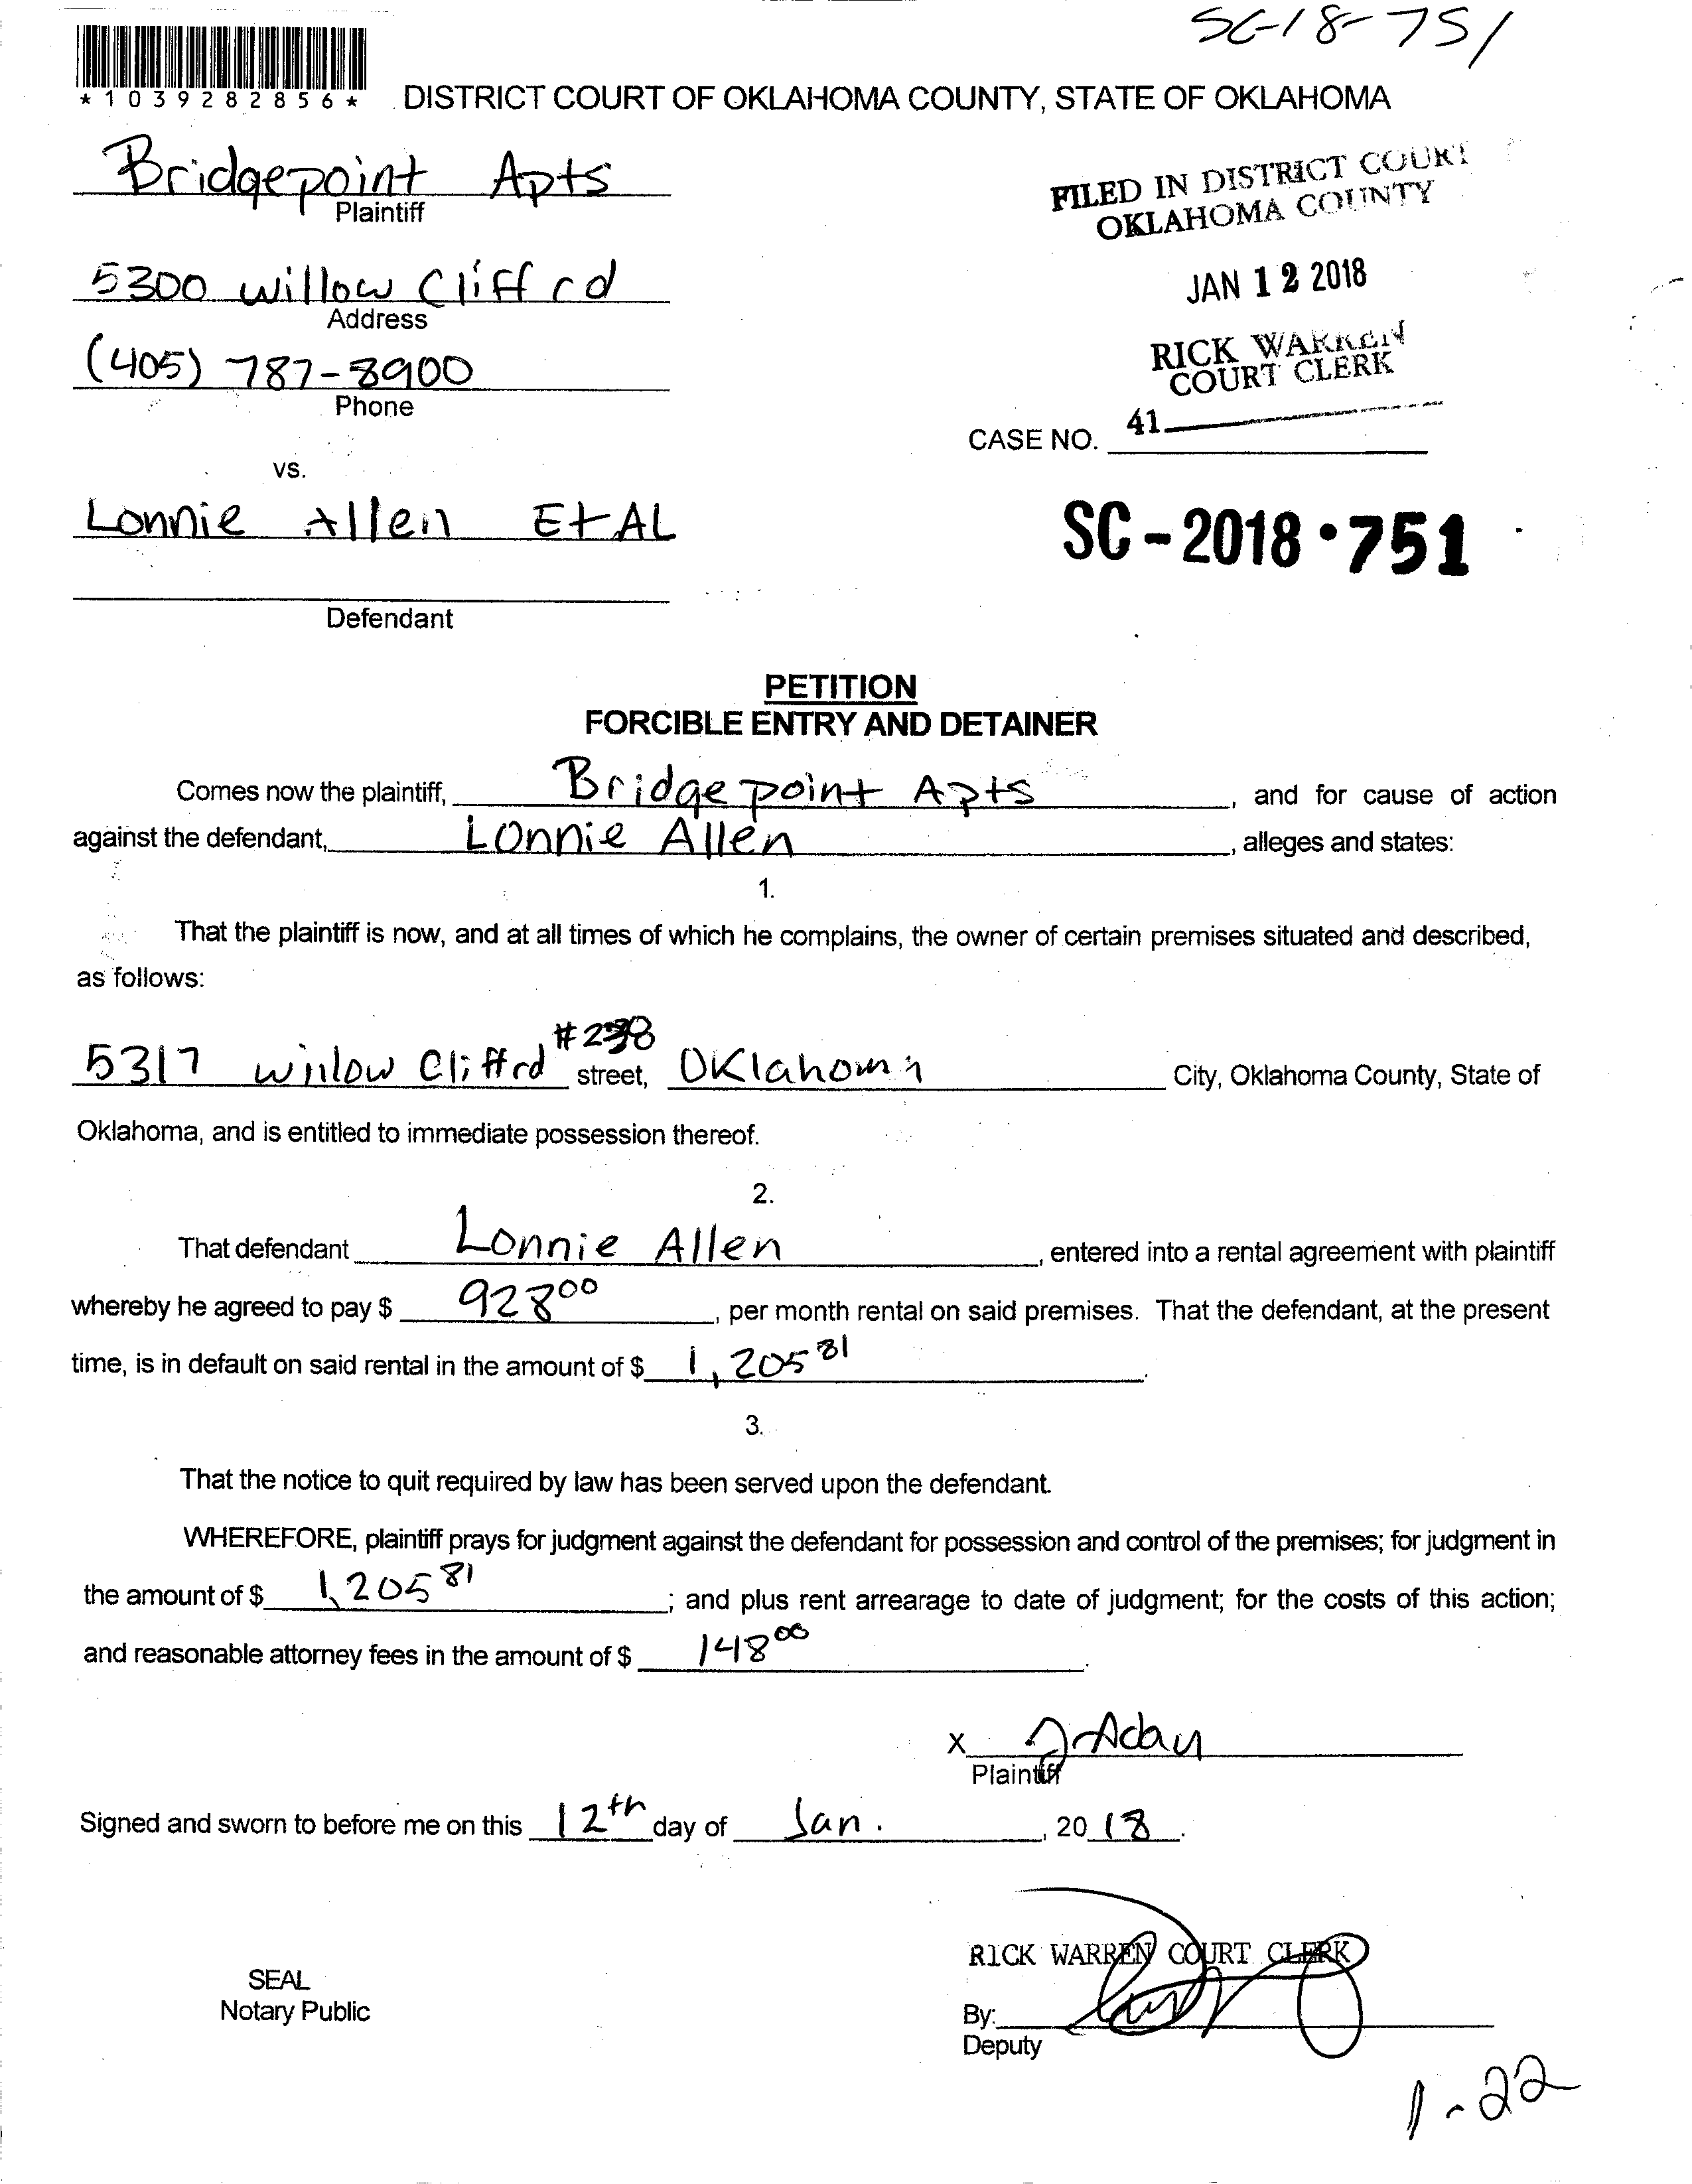 SC-18-751
*1039282856*
DISTRICT COURT OF OKLAHOMA COUNTY, STATE OF OKLAHOMA
Bridgepoint Apts
Plaintiff
FILED IN DISTRICT COURT
OKLAHOMA COUNTY
5300 willow Cliff rd
Address
JAN 12 2018
(405) 787-8900
Phone
RICK WARREN
COURT CLERK
CASE NO. 41
vs.
Lonnie Allen Et AL
SC-2018·751
Defendant
PETITION
FORCIBLE ENTRY AND DETAINER
Comes now the plaintiff, Bridgepoint Apts, and for cause of action
against the defendant, Lonnie Allen, alleges and states:
1.
That the plaintiff is now, and at all times of which he complains, the owner of certain premises situated and described,
as follows:
5317 willow Cliff rd #238 street, Oklahoma City, Oklahoma County, State of
Oklahoma, and is entitled to immediate possession thereof.
2.
That defendant Lonnie Allen, entered into a rental agreement with plaintiff
whereby he agreed to pay $ 928 00, per month rental on said premises. That the defendant, at the present
time, is in default on said rental in the amount of $ 1,205 81.
3.
That the notice to quit required by law has been served upon the defendant.
WHEREFORE, plaintiff prays for judgment against the defendant for possession and control of the premises; for judgment in
the amount of $ 1,205 81; and plus rent arrearage to date of judgment; for the costs of this action;
and reasonable attorney fees in the amount of $ 148 00.
X
Plaintiff
Signed and sworn to before me on this 12th day of Jan., 2018.
RICK WARREN COURT CLERK
SEAL
Notary Public
By:
Deputy
1-22